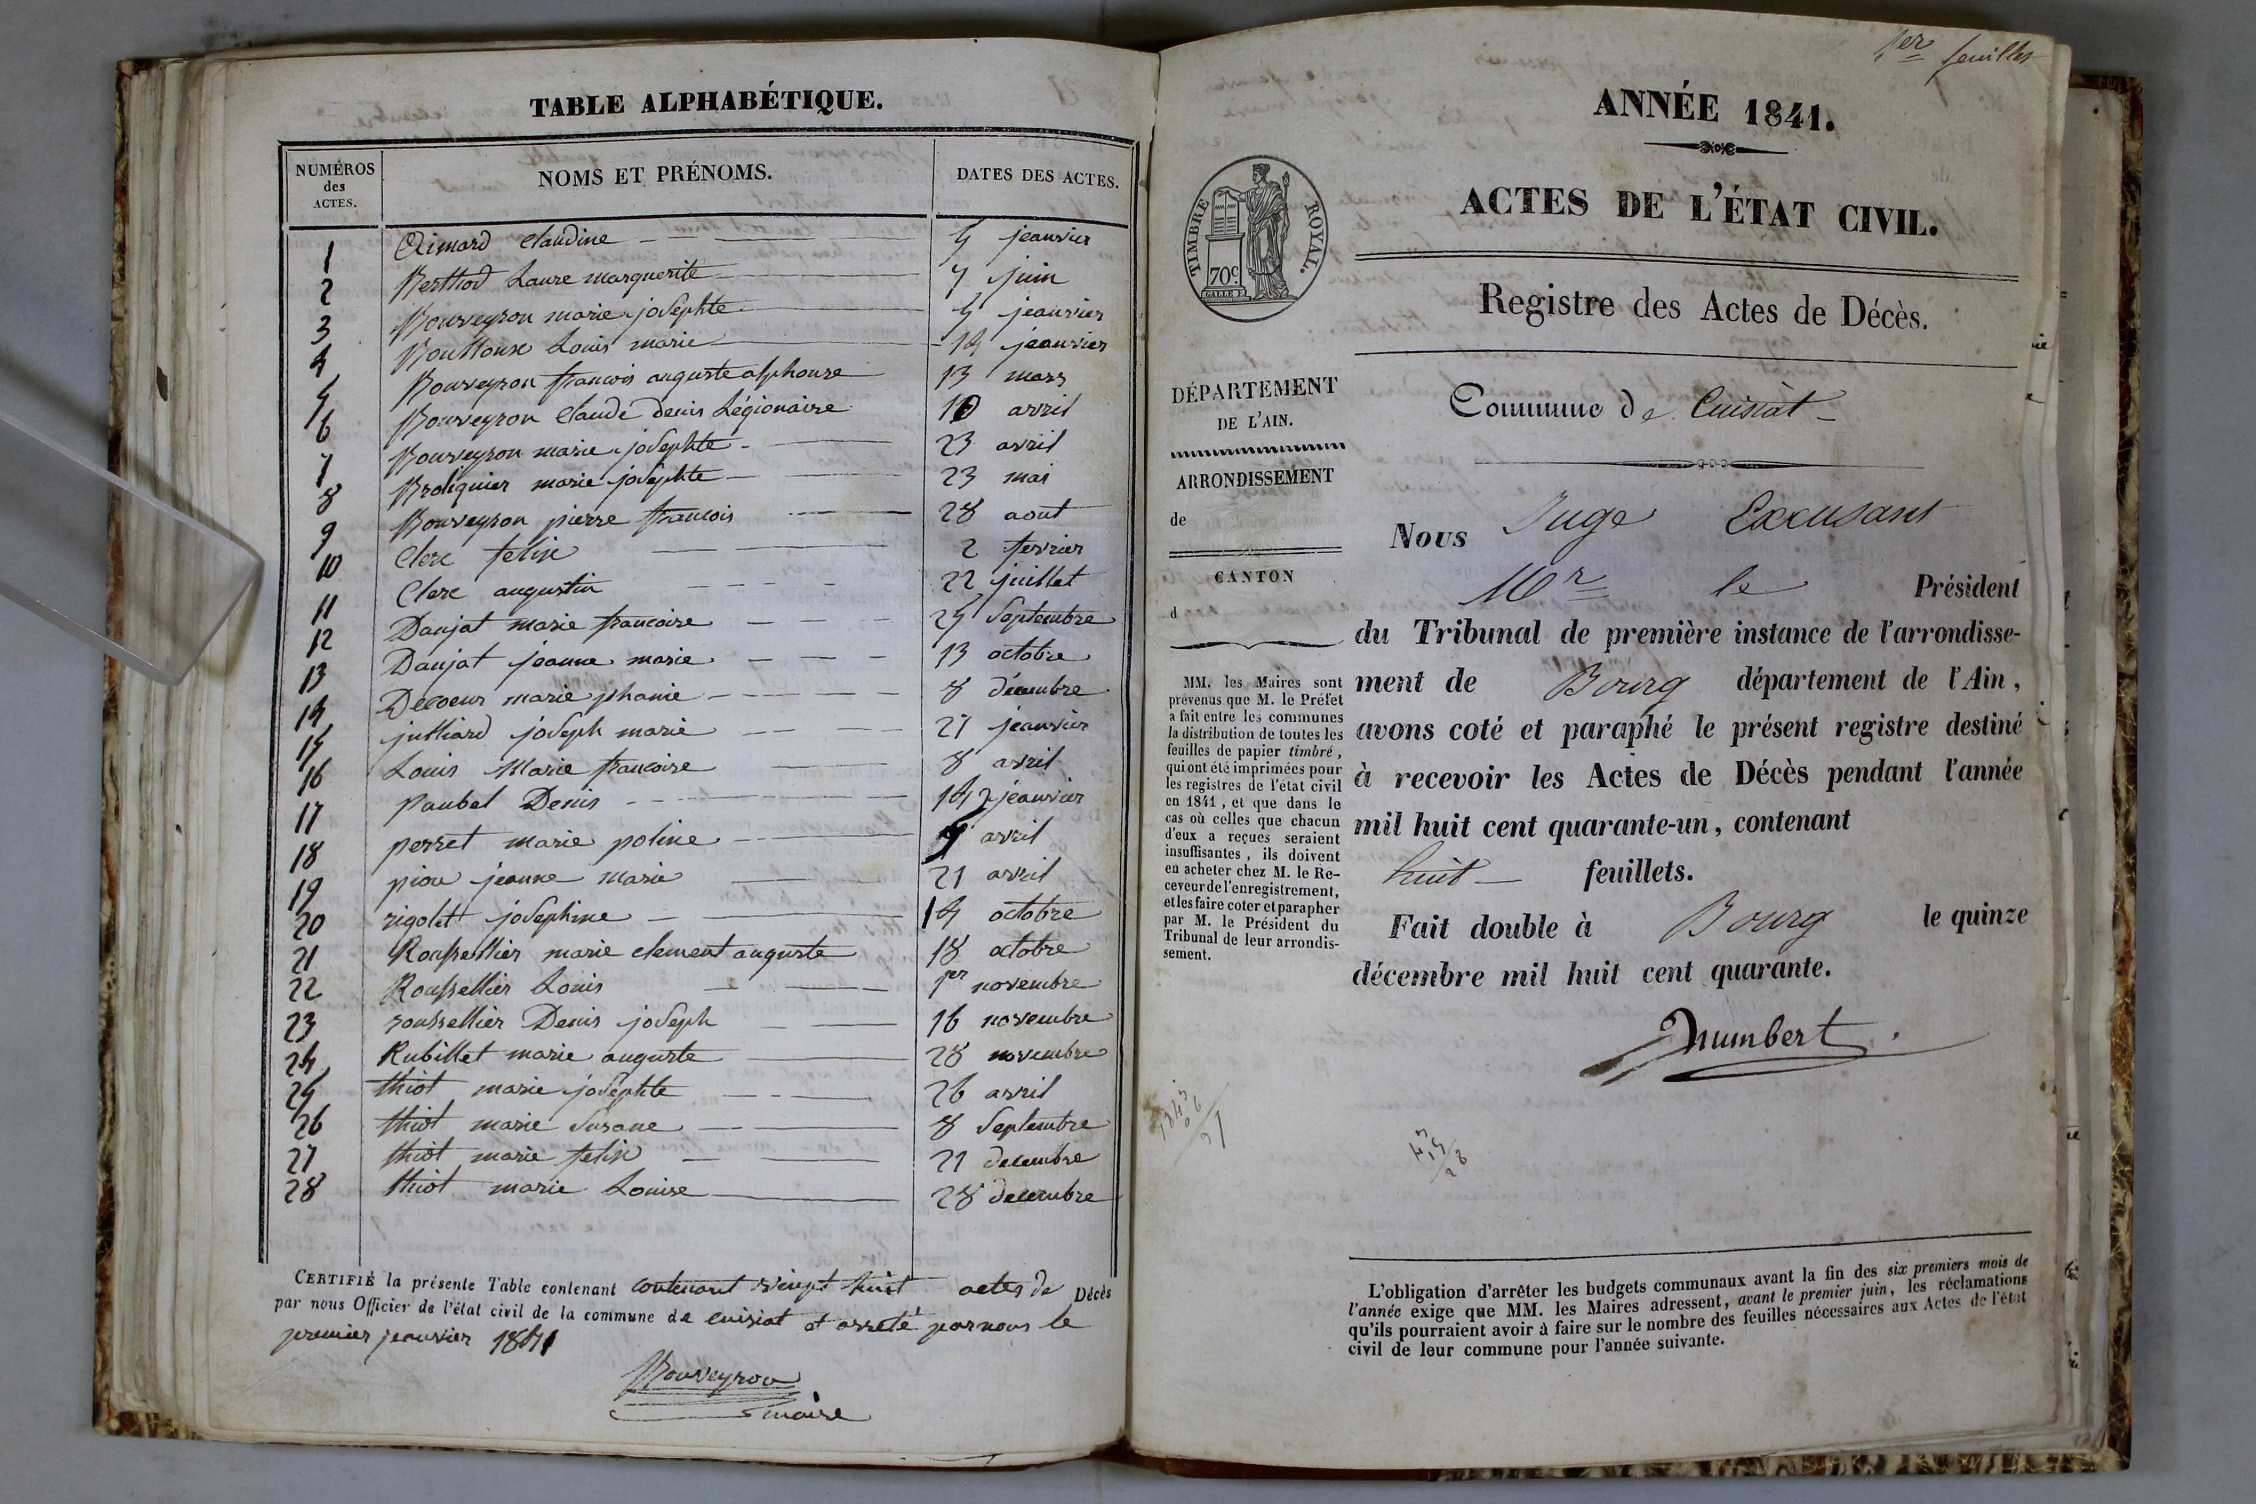 TABLE ALPHABÉTIQUE.
NUMÉROS des ACTES. NOMS ET PRÉNOMS. DATES DES ACTES.
1 Aimard Claudine 5 jeanvier
2 Berthod Laure marguerite 7 juin
3 Bouveyron marie josephte 5 jeanvier
4 Louis marie 14 jeanvier
5 Bouveyron francois auguste alphonse 13 mars
6 Bouveyron Claude denis Légionaire 10 avril
7 Bouveyron marie josephte 23 avril
8 Broliquier marie josephte 23 mai
9 Bouveyron pierre francois 28 aout
10 Clerc felix 2 fevrier
Clerc augustin 22 juillet
11 Daujat marie francoise 25 Septembre
12 Daujat jeanne marie 13 octobre
13 Decoeur marie phanie 8 décembre
14 julliard joseph marie 27 jeanvier
15 Louis Marie francoise 8 avril
16 paubel Denis 14 jeanvier
17 perret marie poline avril
18 piou jeanne marie 21 avril
19 rigolet josephine 14 octobre
20 Roussellier marie clement auguste 18 octobre
21 Roussellier Louis 1er novembre
22 roussellier Denis joseph 16 novembre
23 Rubillet marie auguste 28 novembre
24 thiot marie josephte 26 avril
25 thiot marie Susane 8 Septembre
26 thiot marie felix 21 decembre
27 thiot marie Louise 28 decembre
28
CERTIFIÉ la présente Table contenant contenant vingt huit actes de Décès
par nous Officier de l'état civil de la commune de cuisiat et arreté par nous le
premier jeanvier 1841
Bouveyron
maire
1er feuillet
ANNÉE 1841.
ACTES DE L'ÉTAT CIVIL.
TIMBRE ROYAL.
70c
Registre des Actes de Décès.
DÉPARTEMENT
DE L'AIN.
ARRONDISSEMENT
de
CANTON
d
MM. les Maires sont
prévenus que M. le Préfet
a fait entre les communes
la distribution de toutes les
feuilles de papier timbré,
qui ont été imprimées pour
les registres de l'état civil
en 1841, et que dans le
cas où celles que chacun
d'eux a reçues seraient
insuffisantes, ils doivent
en acheter chez M. le Re-
ceveur de l'enregistrement,
et les faire coter et parapher
par M. le Président du
Tribunal de leur arrondis-
sement.
Commune de Cuisiat
Nous Juge Excusant
Mr le Président
du Tribunal de première instance de l'arrondisse-
ment de Bourg département de l'Ain,
avons coté et paraphé le présent registre destiné
à recevoir les Actes de Décès pendant l'année
mil huit cent quarante-un, contenant
huit feuillets.
Fait double à Bourg le quinze
décembre mil huit cent quarante.
L'obligation d'arrêter les budgets communaux avant la fin des six premiers mois de
l'année exige que MM. les Maires adressent, avant le premier juin, les réclamations
qu'ils pourraient avoir à faire sur le nombre des feuilles nécessaires aux Actes de l'état
civil de leur commune pour l'année suivante.